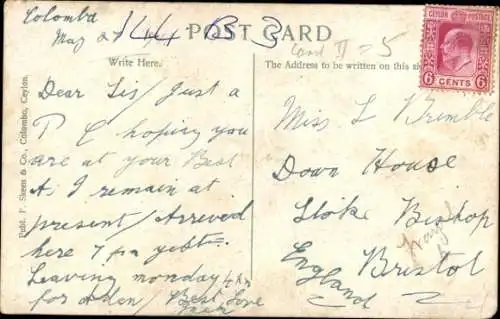 Colombo
May 2
144 B 3
POST CARD
Card II - 5
Write Here.
The Address to be written on this si
CEYLON POSTAGE
6 CENTS 6
Publ. P. Skeen & Co., Colombo, Ceylon.
Dear Sis/ Just a
P C hoping you
are at your Best
As I remain at
present/ Arreved
here 7 pm
Leaving monday 4
for Aden/ Best Love
Miss L Brimble
Down House
Stoke Bishop
Bristol
England